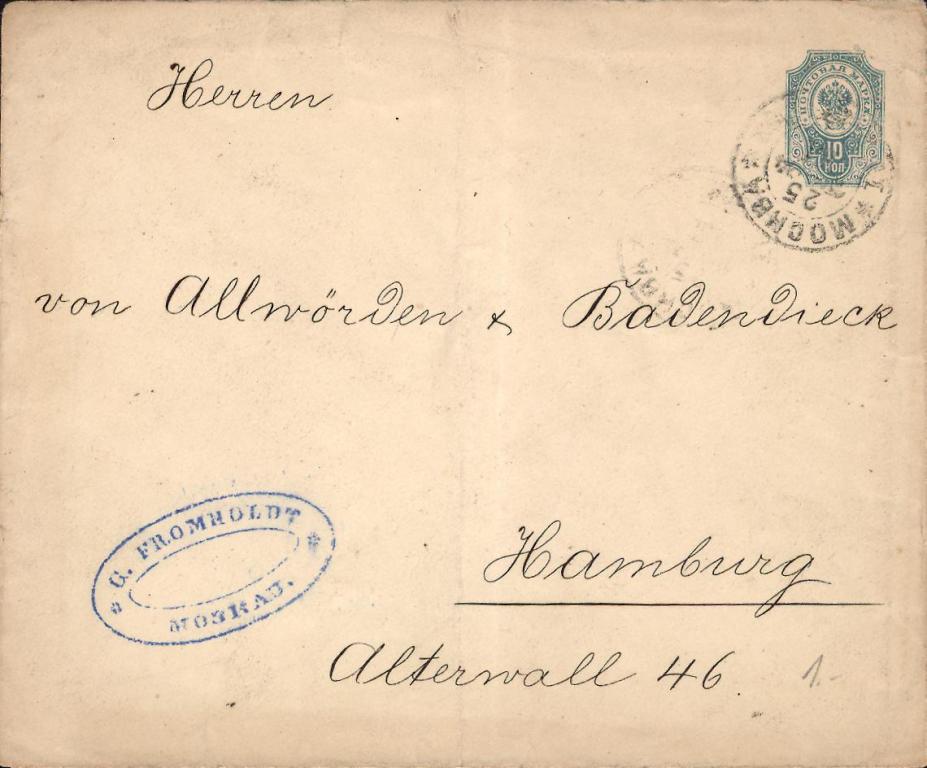 Herren
ПОЧТОВАЯ МАРКА
10
КОП
25
МОСКВА
von Allwörden & Badendieck
G. FROMHOLDT
MOSKAU.
Hamburg
Alterwall 46
1.-